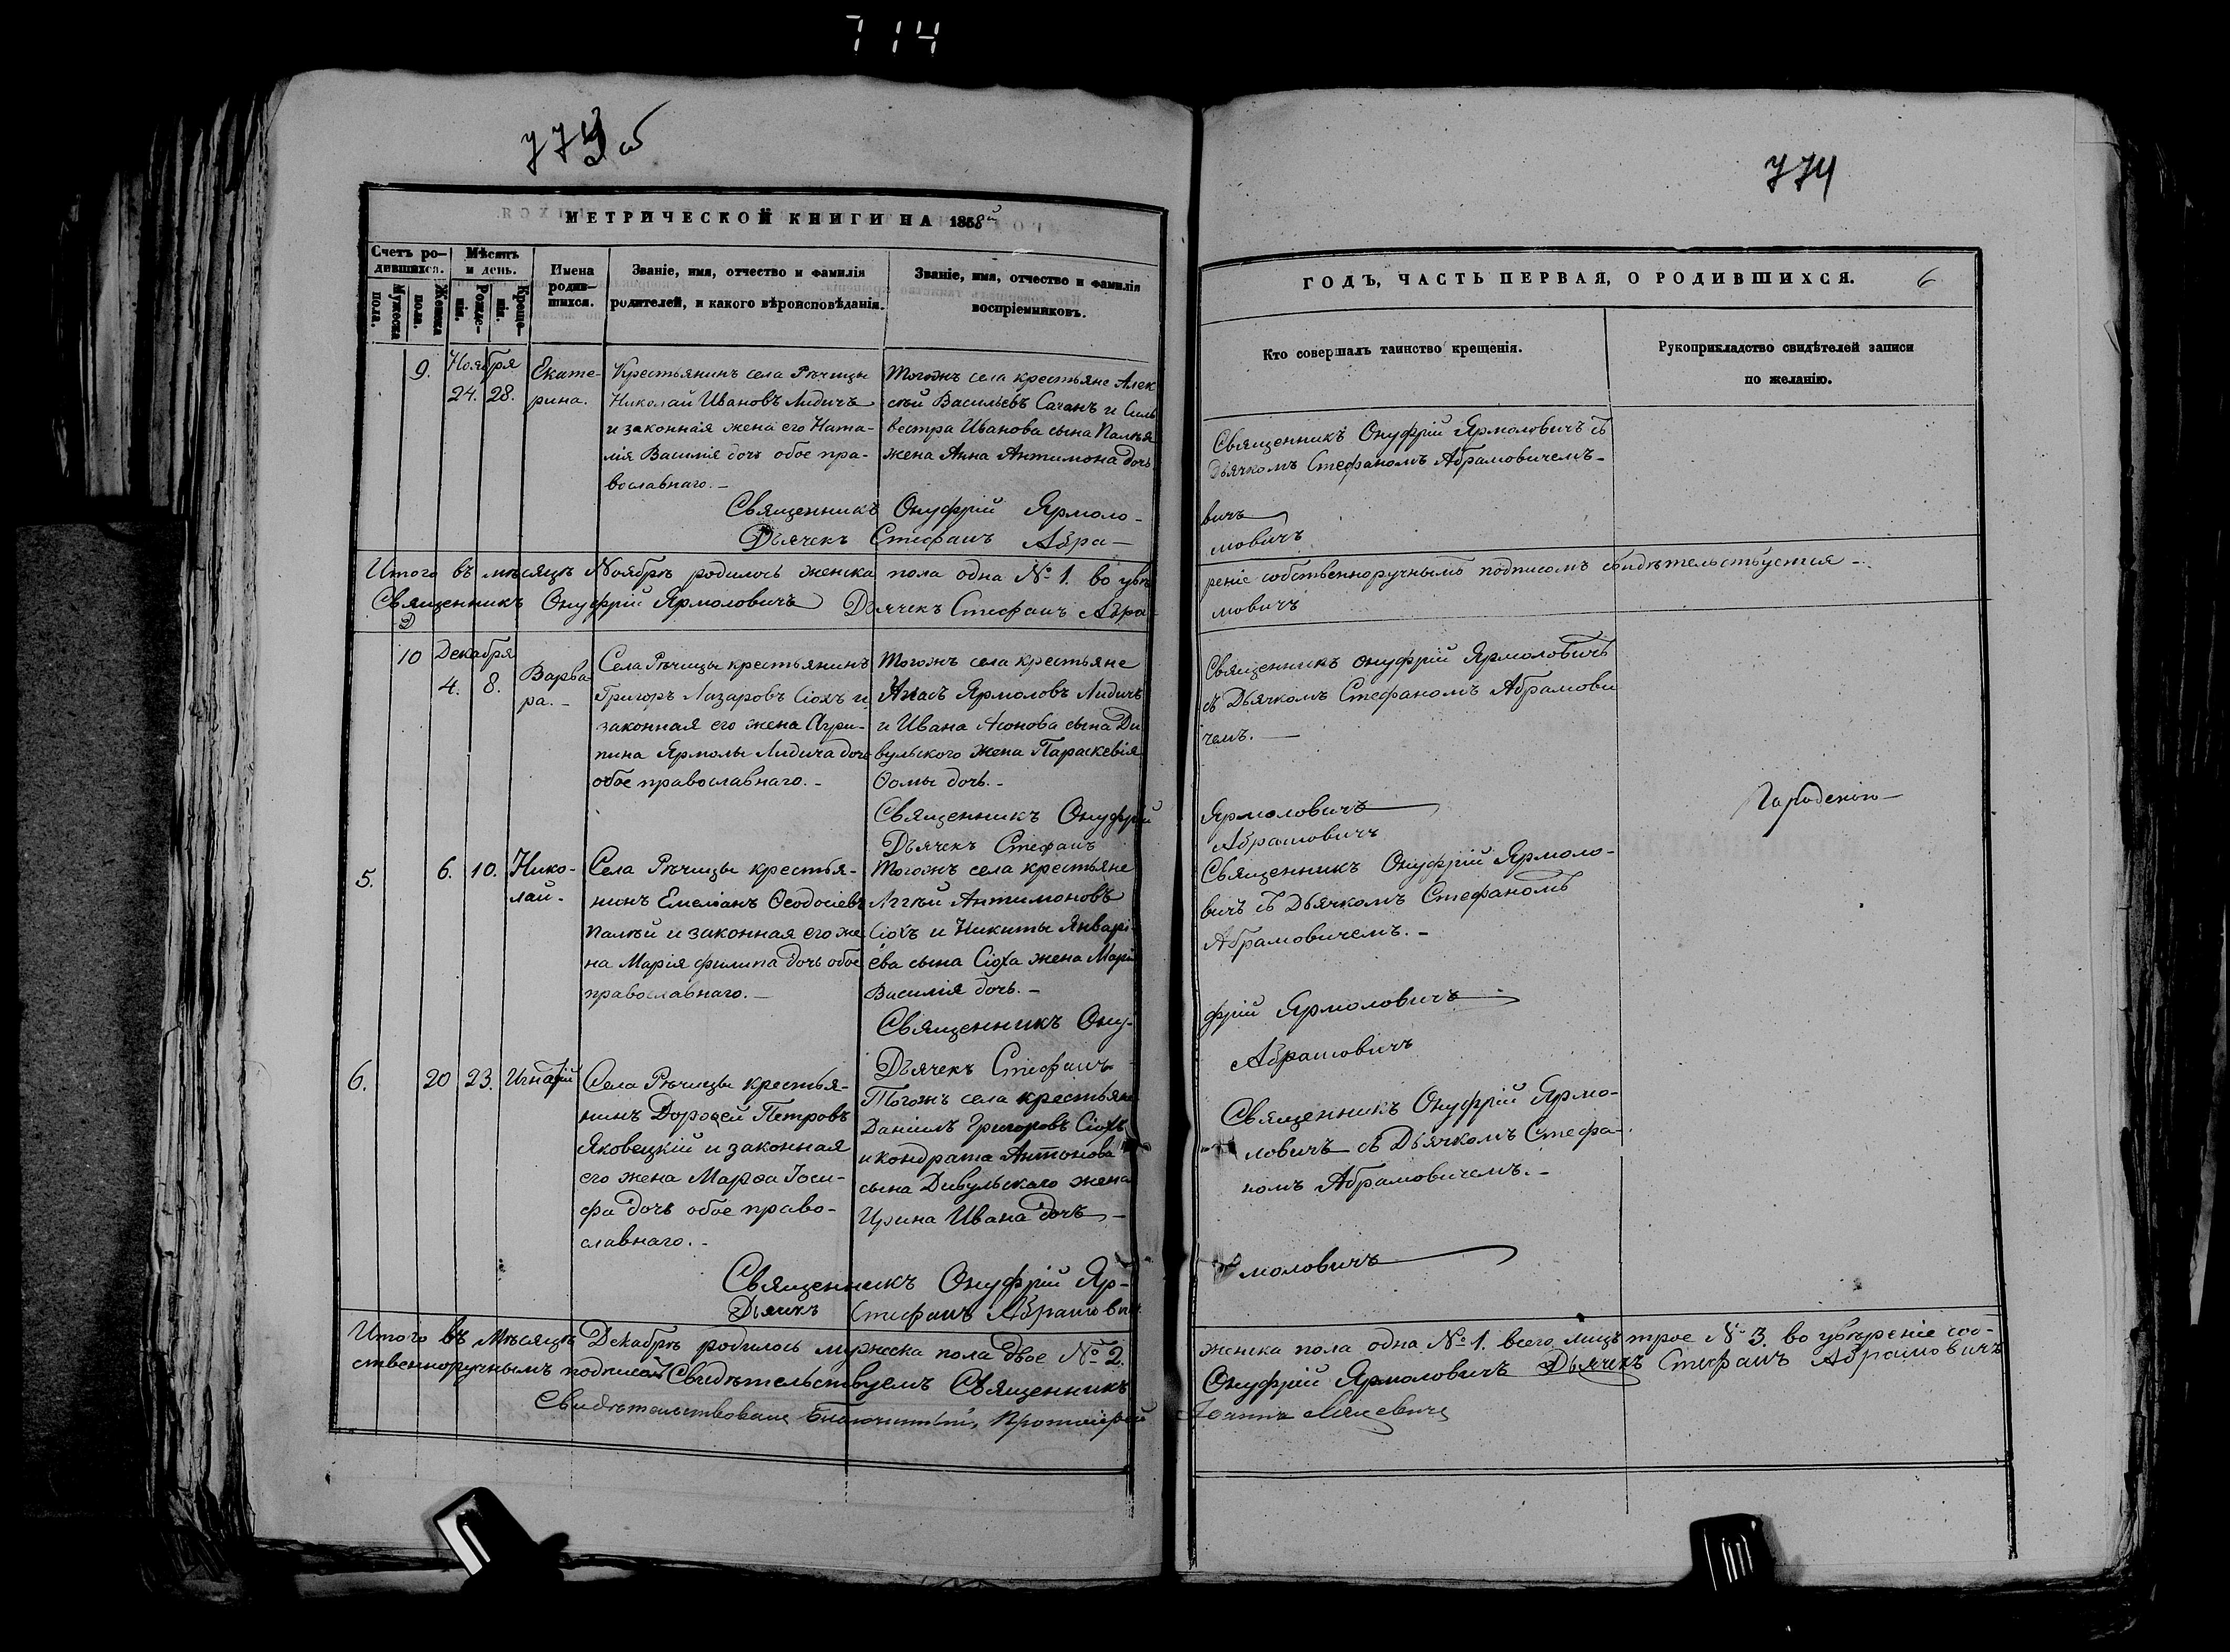 714
773 об
774
МЕТРИЧЕСКОЙ КНИГИ НА 1858й
Счетъ ро-
дившихся.
Мужеска
пола.
Женска
пола.
Мѣсяцъ
и день.
Рожде-
нія.
Креще-
нія.
Имена
родив-
шихся.
Званіе, имя, отчество и фамилія
родителей, и какого вѣроисповѣданія.
Званіе, имя, отчество и фамилія
воспріемниковъ.
ГОДЪ, ЧАСТЬ ПЕРВАЯ, О РОДИВШИХСЯ. 6
Кто совершалъ таинство крещенія.
Рукоприкладство свидѣтелей записи
по желанію.
9.
Ноября
24. 28.
Екате-
рина.
Крестьянинъ села Рѣчицы
Николай Ивановъ Лидичъ
и законная жена его Ната-
лія Василія дочь обое пра-
вославнаго. -
Тогожъ села крестьяне Алек
сѣй Васильевъ Сачанъ и Силь
вестра Иванова сына Палѣя
жена Анна Антимона дочь
Священникъ Онуфрій Ярмоловичъ съ
Дьячкомъ Стефаномъ Абрамовичемъ -
Священникъ Онуфрій Ярмоло-
вичъ
Дьячекъ Стефанъ Абра-
мовичъ
Итого въ мѣсяцѣ Ноябрѣ родилось женска пола одна № 1. во увѣ
реніе собственноручнымъ подписомъ свидѣтельствуется -.
Священникъ Онуфрій Ярмоловичъ Дьячекъ Стефанъ Абра-
мовичъ
10
Декабря
4. 8.
Варва
ра. -
Села Рѣчицы крестьянинъ
Григоръ Лазаровъ Сіохъ и
законная его жена Агри-
пина Ярмолы Лидича дочь
обое православнаго. -
Тогожъ села крестьяне
Ярмоловъ Лидичъ
и Ивана сына Ди
вульского жена Параскевія
Ѳомы дочь. -
Священникъ Онуфрій Ярмоловичъ
съ Дьячкомъ Стефаномъ Абрамови
чемъ. -
Священникъ Онуфрій
Ярмоловичъ
Дьячекъ Стефанъ
Абрамовичъ
5.
6. 10.
Нико-
лай.
Села Рѣчицы крестья-
нинъ Емеліанъ Ѳеодосіевъ
Палѣй и законная его же
на Марія филипа дочь обое
православнаго. -
Тогожъ села крестьяне
Аггѣй Антимоновъ
Сіохъ и Никиты Январі-
ева сына Сіоха жена Марія
Василія дочь. -
Священникъ Онуфрій Ярмоло-
вичъ съ Дьячкомъ Стефаномъ
Абрамовичемъ. -
Священникъ Ону-
фрій Ярмоловичъ
Дьячекъ Стефанъ
Абрамовичъ
6.
20 23.
Игнатій
Села Рѣчицы крестья-
нинъ Дороѳей Петровъ
Яковецкій и законная
его жена Марѳа Іоси-
фа дочь обое право-
славнаго. -
Тогожъ села крестьяне
Даніилъ Григоровъ Сіохъ
и кондрата Антонова
сына Дивульскаго жена
Ирина Ивана дочь -
Священникъ Онуфрій Ярмо-
ловичъ съ Дьячкомъ Стефа-
номъ Абрамовичемъ. -
Священникъ Онуфрій Яр-
моловичъ
Дьячекъ Стефанъ Абрамович
Итого въ Мѣсяцѣ Декабрѣ родилось мужеска пола двое № 2.
женска пола одна № 1. всего лицъ трое № 3. во увѣреніе соб-
ственноручнымъ подписомъ Свидѣтельствуемъ Священникъ
Онуфрій Ярмоловичъ Дьячекъ Стефанъ Абрамовичъ
Свидѣтельствовалъ Благочинный, Протоіерей
Іоаннъ